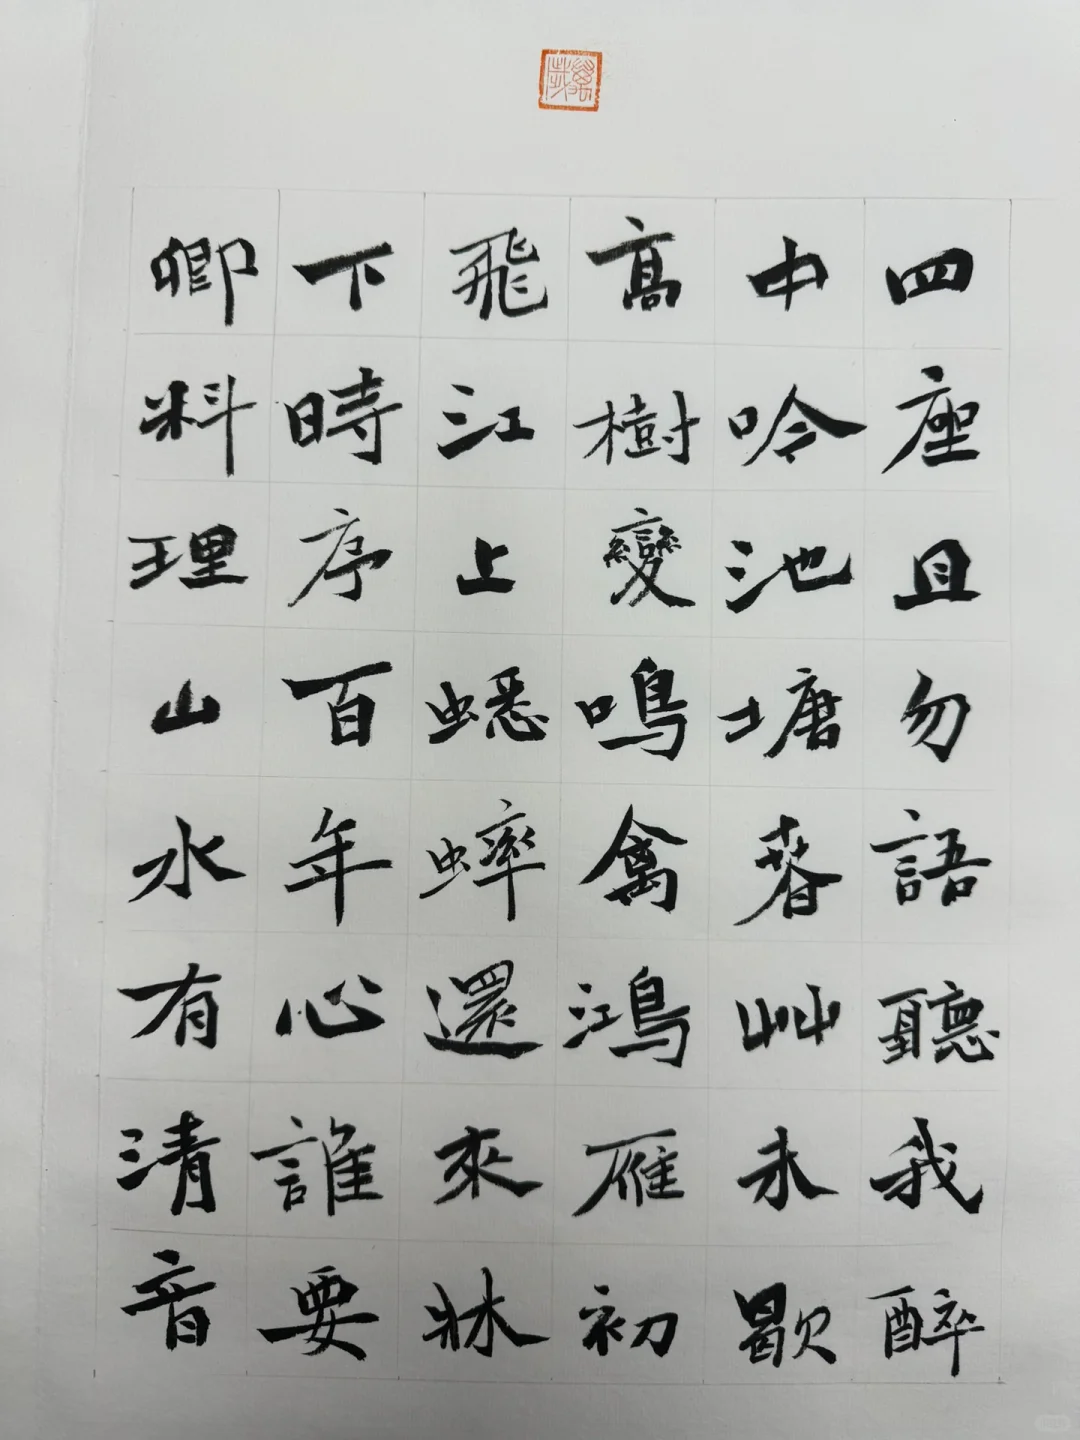 四座且勿語聽我醉
中吟池塘春艸未歇
高樹變鳴禽鴻雁初
飛江上蟋蟀還來牀
下時序百年心誰要
卿料理山水有清音